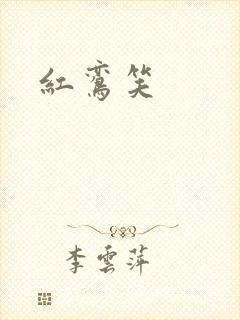 紅鸞笑
李雲萍